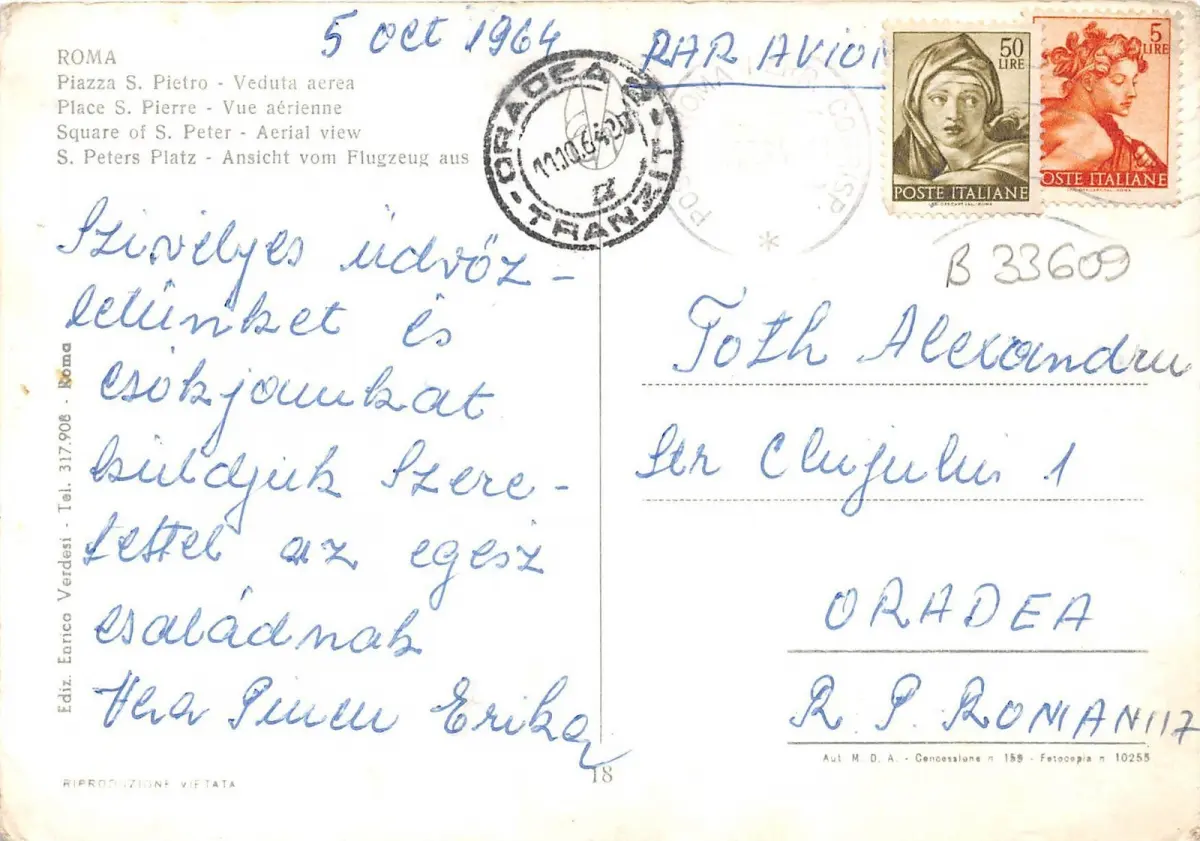 5 oct 1964
PAR AVION
ROMA
Piazza S. Pietro - Veduta aerea
Place S. Pierre - Vue aérienne
Square of S. Peter - Aerial view
S. Peters Platz - Ansicht vom Flugzeug aus
ORADEA
11.10.64
TRANZIT
50
LIRE
POSTE ITALIANE
5
LIRE
POSTE ITALIANE
B 33609
Szivélyes üdvöz-
letünket és
csókjainkat
küldjük szere-
tettel az egész
családnak
Vera Erika
Toth Alexandru
Str Clujului 1
ORADEA
R. P. ROMANIA
Ediz. Enrico Verdesi - Tel. 317.908 - Roma
RIPRODUZIONE VIETATA
18
Aut M. D. A. - Concessione n 159 - Fotocopia n 10255